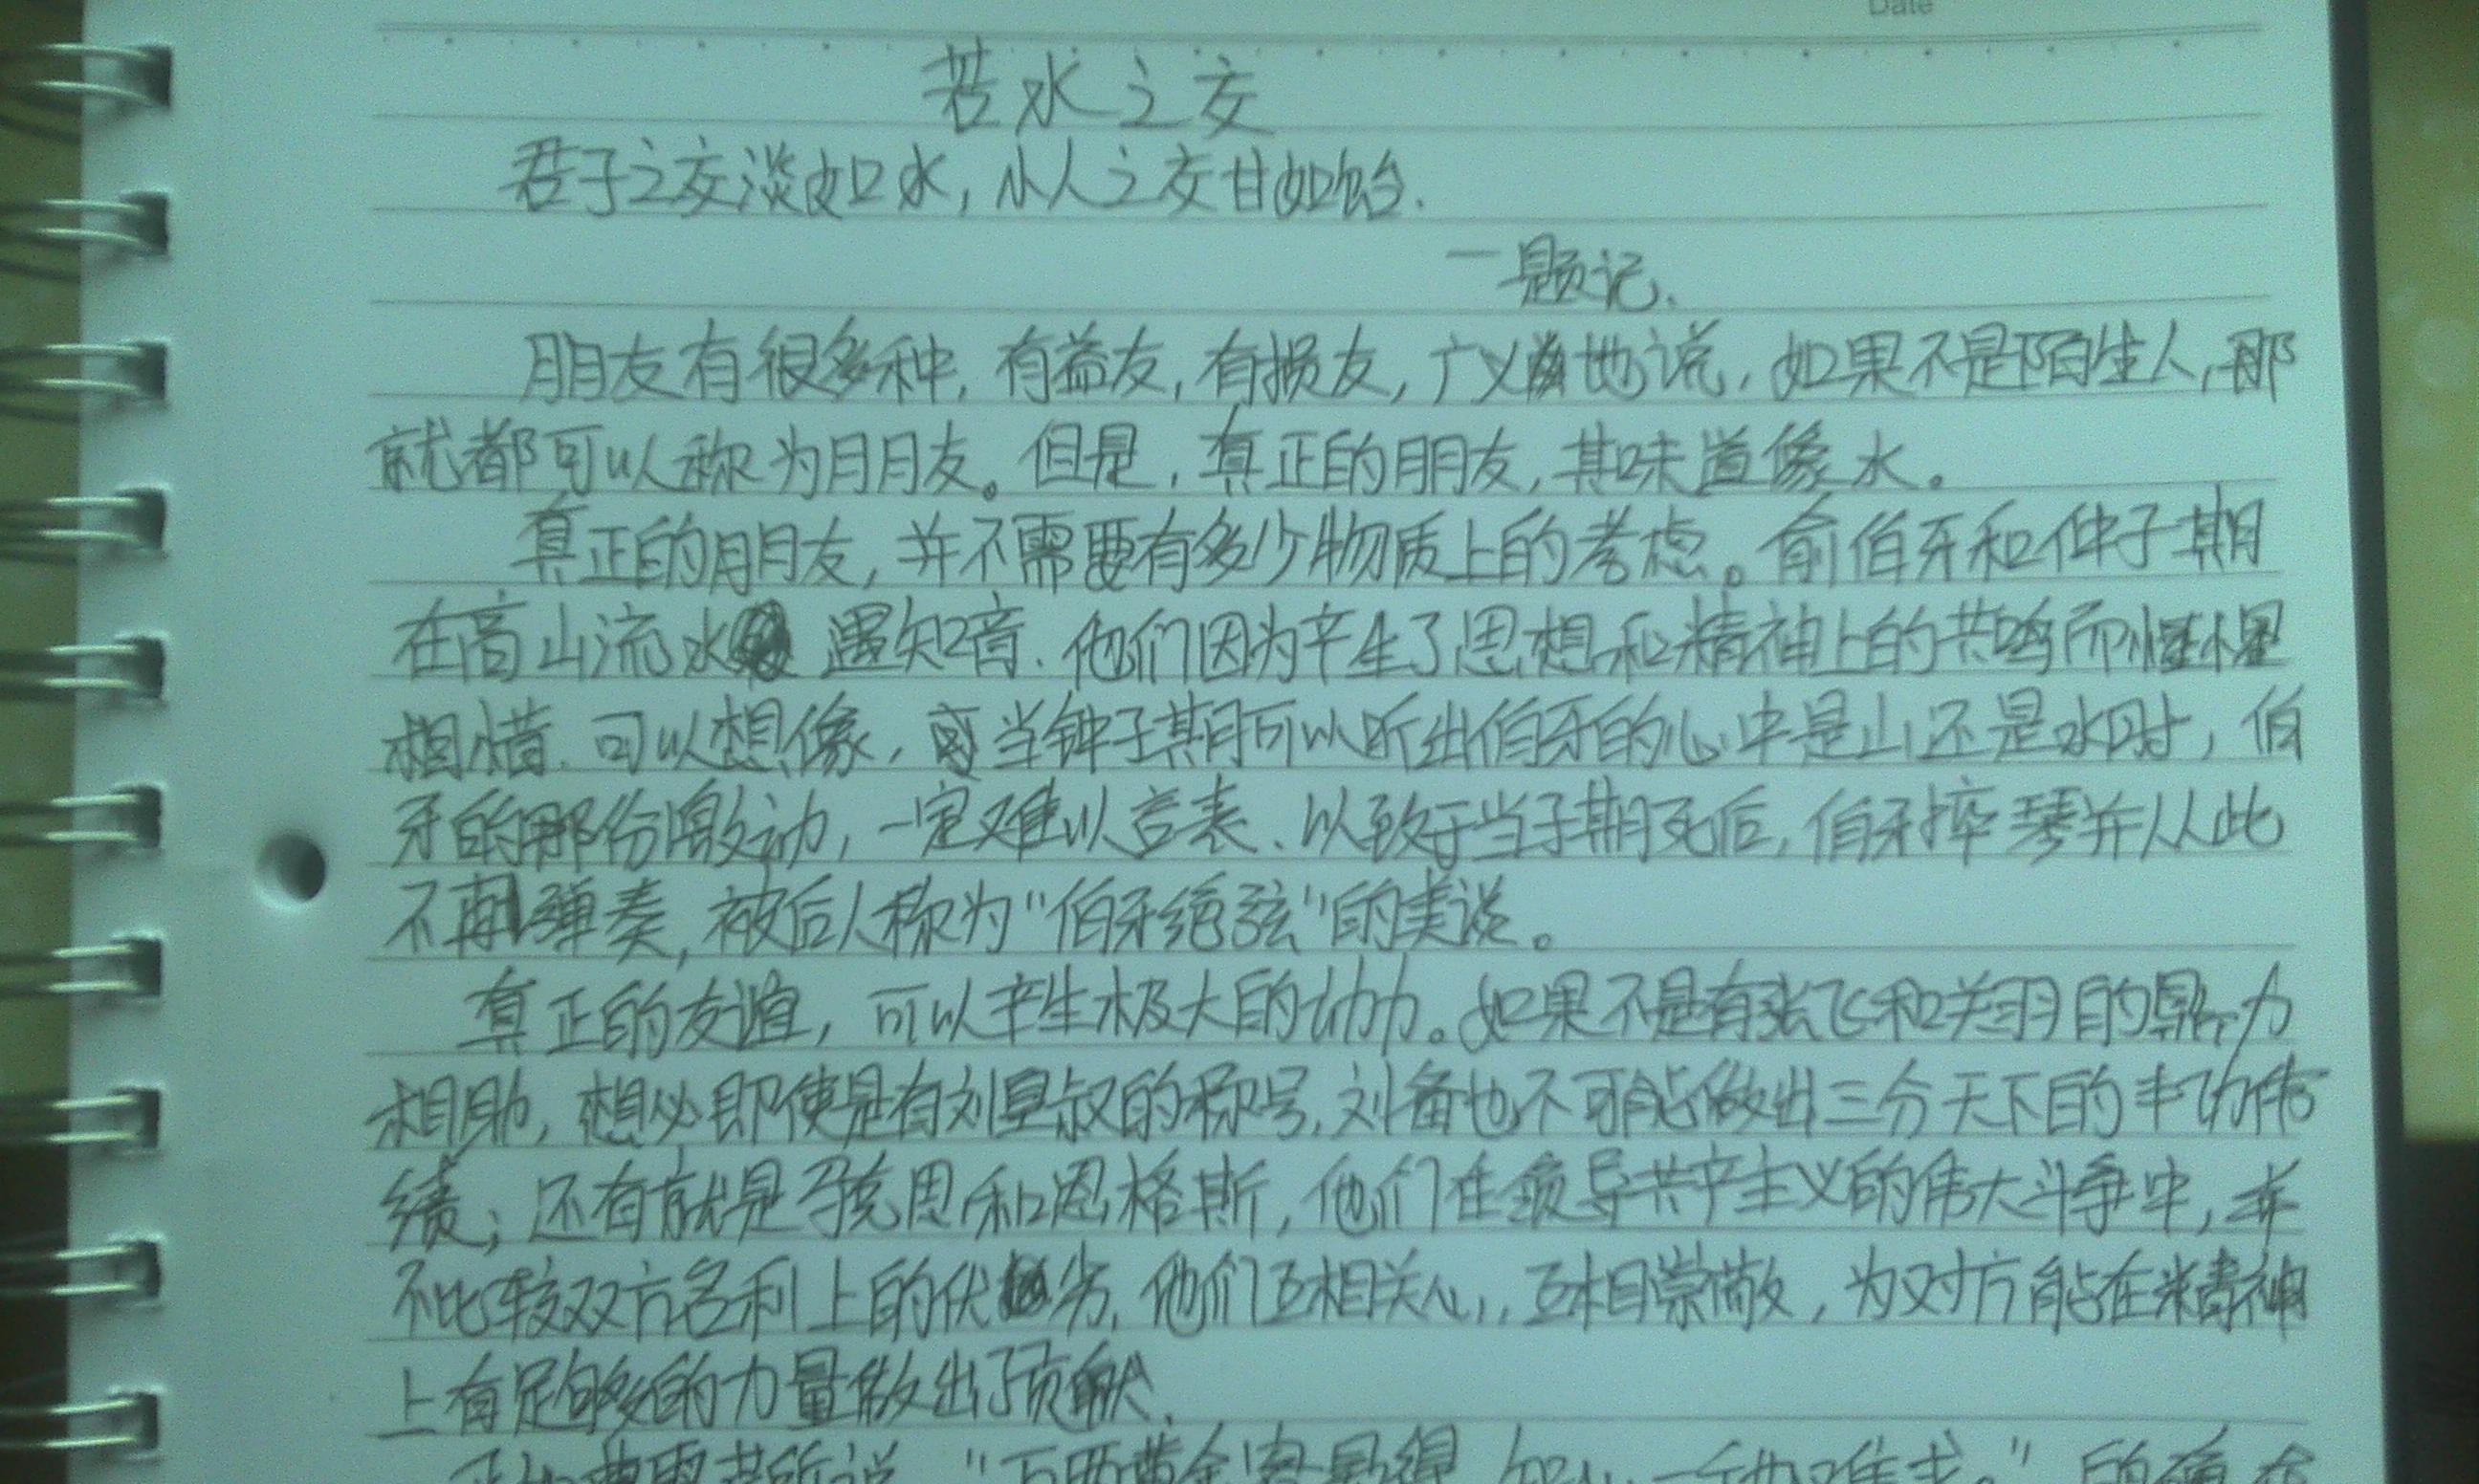 Date
若水之交
君子之交淡如水，小人之交甘如饴.
一题记.
朋友有很多种，有益友，有损友，广义地说，如果不是陌生人，那
就都可以称为朋友。但是，真正的朋友，其味道像水。
真正的朋友，并不需要有多少物质上的考虑。俞伯牙和仲子期
在高山流水 遇知音.他们因为产生了思想和精神上的共鸣而惺惺
相惜.可以想像，当钟子期可以听出伯牙的心中是山还是水时，伯
牙的那份激动，一定难以言表、以致于当子期死后，伯牙摔琴并从此
不再弹奏，被后人称为"伯牙绝弦"的美谈。
真正的友谊，可以产生极大的动力。如果不是有张飞和关羽的鼎力
相助，想必即使是有刘皇叔的称号，刘备也不可能做出三分天下的丰功伟
绩；还有就是马克思和恩格斯，他们在领导共产主义的伟大斗争中，并
不比较双方名利上的优劣，他们互相关心，互相崇敬，为对方能在精神
上有足够的力量做出了贡献.
正如曹雪芹所说，"万两黄金容易得，知心一个也难求。"的